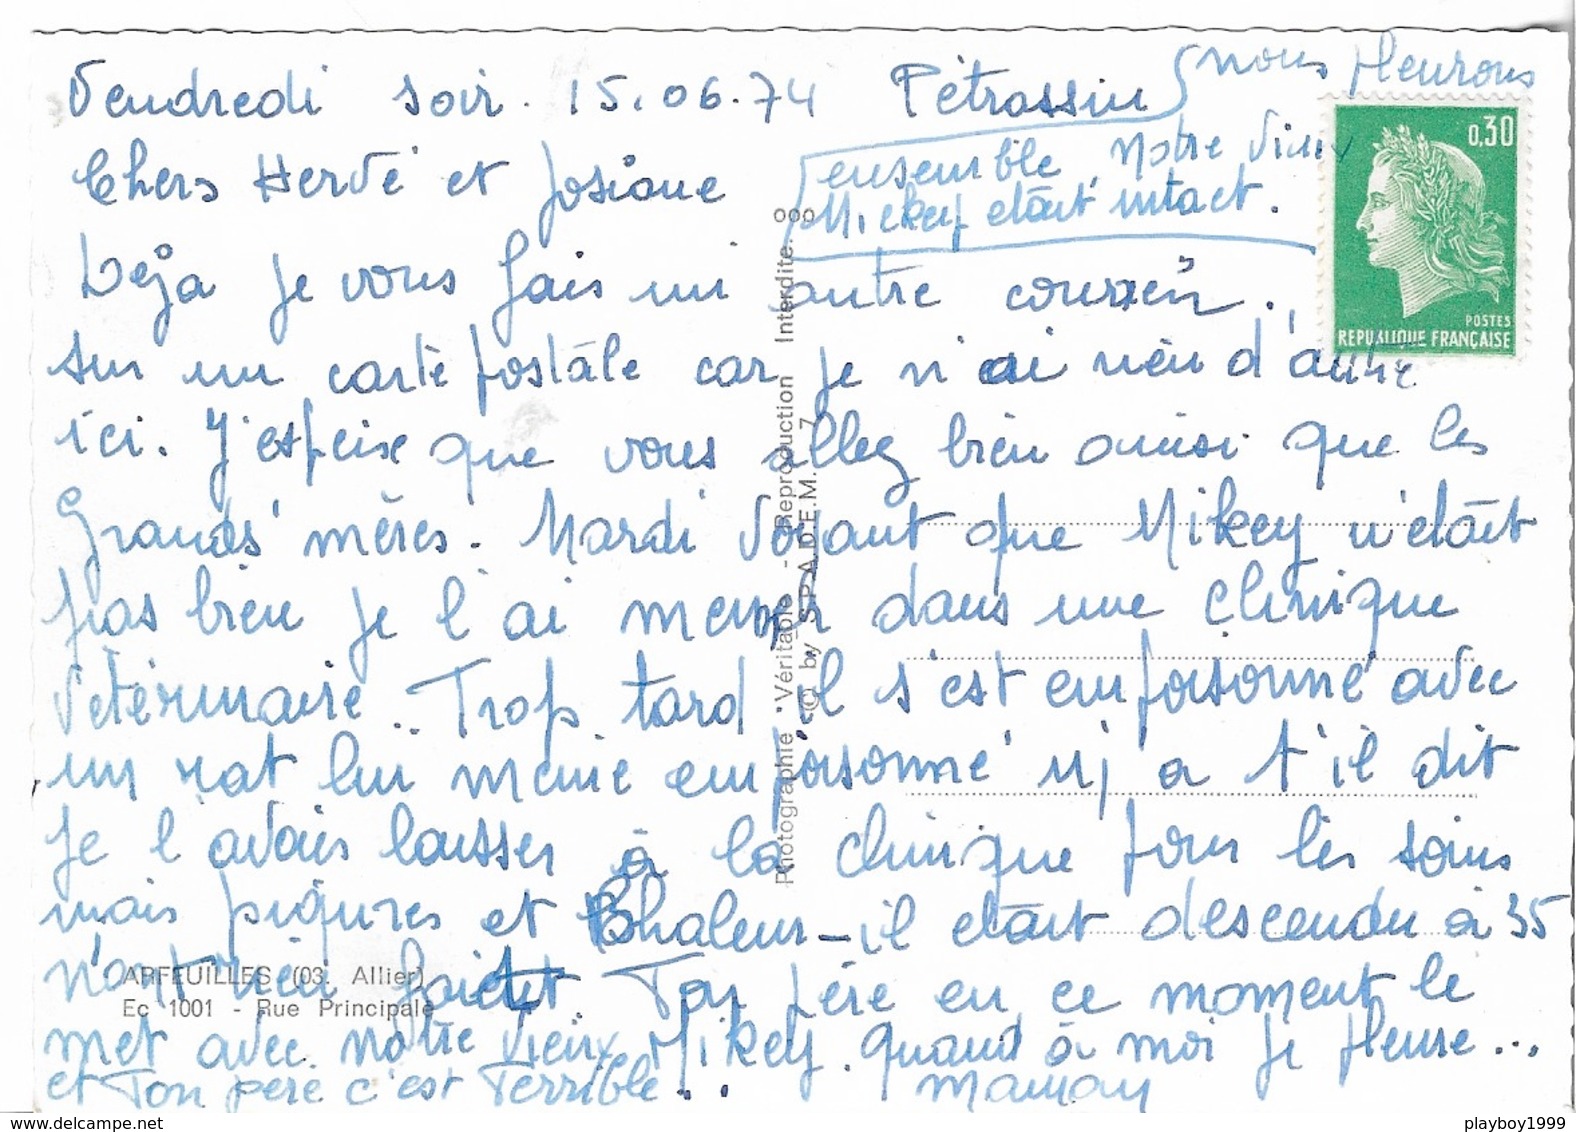 Vendredi soir. 15.06.74 Pétrossin
nous pleurons
ensemble. Notre vieux
Mickey etait intact.
Chers Hervé et Josiane
Déja je vous fais un autre courrier.
sur un carte postale car je n'ai rien d'autre
ici. J'espere que vous allez bien ainsi que les
Grands' mères. Mardi voyant que Mikey n'était
pas bien je l'ai mener dans une clinique
vetérinaire.. Trop tard il s'est empoisonné avec
un rat lui meme empoisonné n'j a t'il dit
je l'avais laisser à la clinique pour les soins
mais piqures et Chaleur - il etait descendu à 35
n'ont rien fait. Ton père en ce moment le
met avec notre vieux Mikey. quand à moi je pleure...
et Ton père c'est Terrible... Maman
0,30
POSTES
REPUBLIQUE FRANÇAISE
Photographie Véritable - Reproduction Interdite. ooo
© by S.P.A.D.E.M. 7
ARFEUILLES (03. Allier)
Ec 1001 - Rue Principale
www.delcampe.net
playboy1999